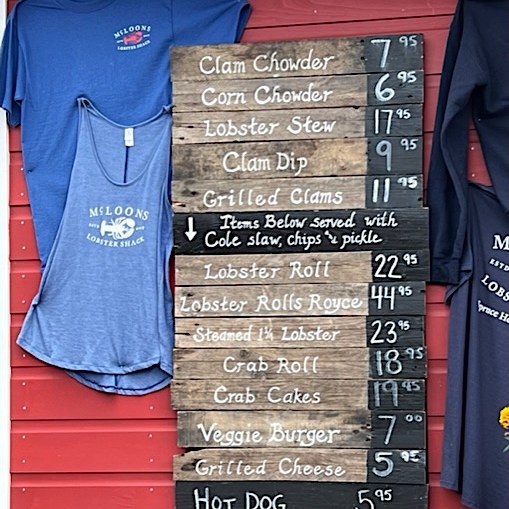 McLOONS
LOBSTER SHACK
McLOONS
LOBSTER SHACK
Clam Chowder 7 95
Corn Chowder 6 95
Lobster Stew 17 95
Clam Dip 9 95
Grilled Clams 11 95
↓ Items Below served with
Cole slaw, chips 'n pickle
Lobster Roll 22 95
Lobster Rolls Royce 44 95
Steamed 1¼ Lobster 23 95
Crab Roll 18 95
Crab Cakes 19 95
Veggie Burger 7 00
Grilled Cheese 5 95
HOT DOG 5 95
M
ESTD
LOBS
Spruce He